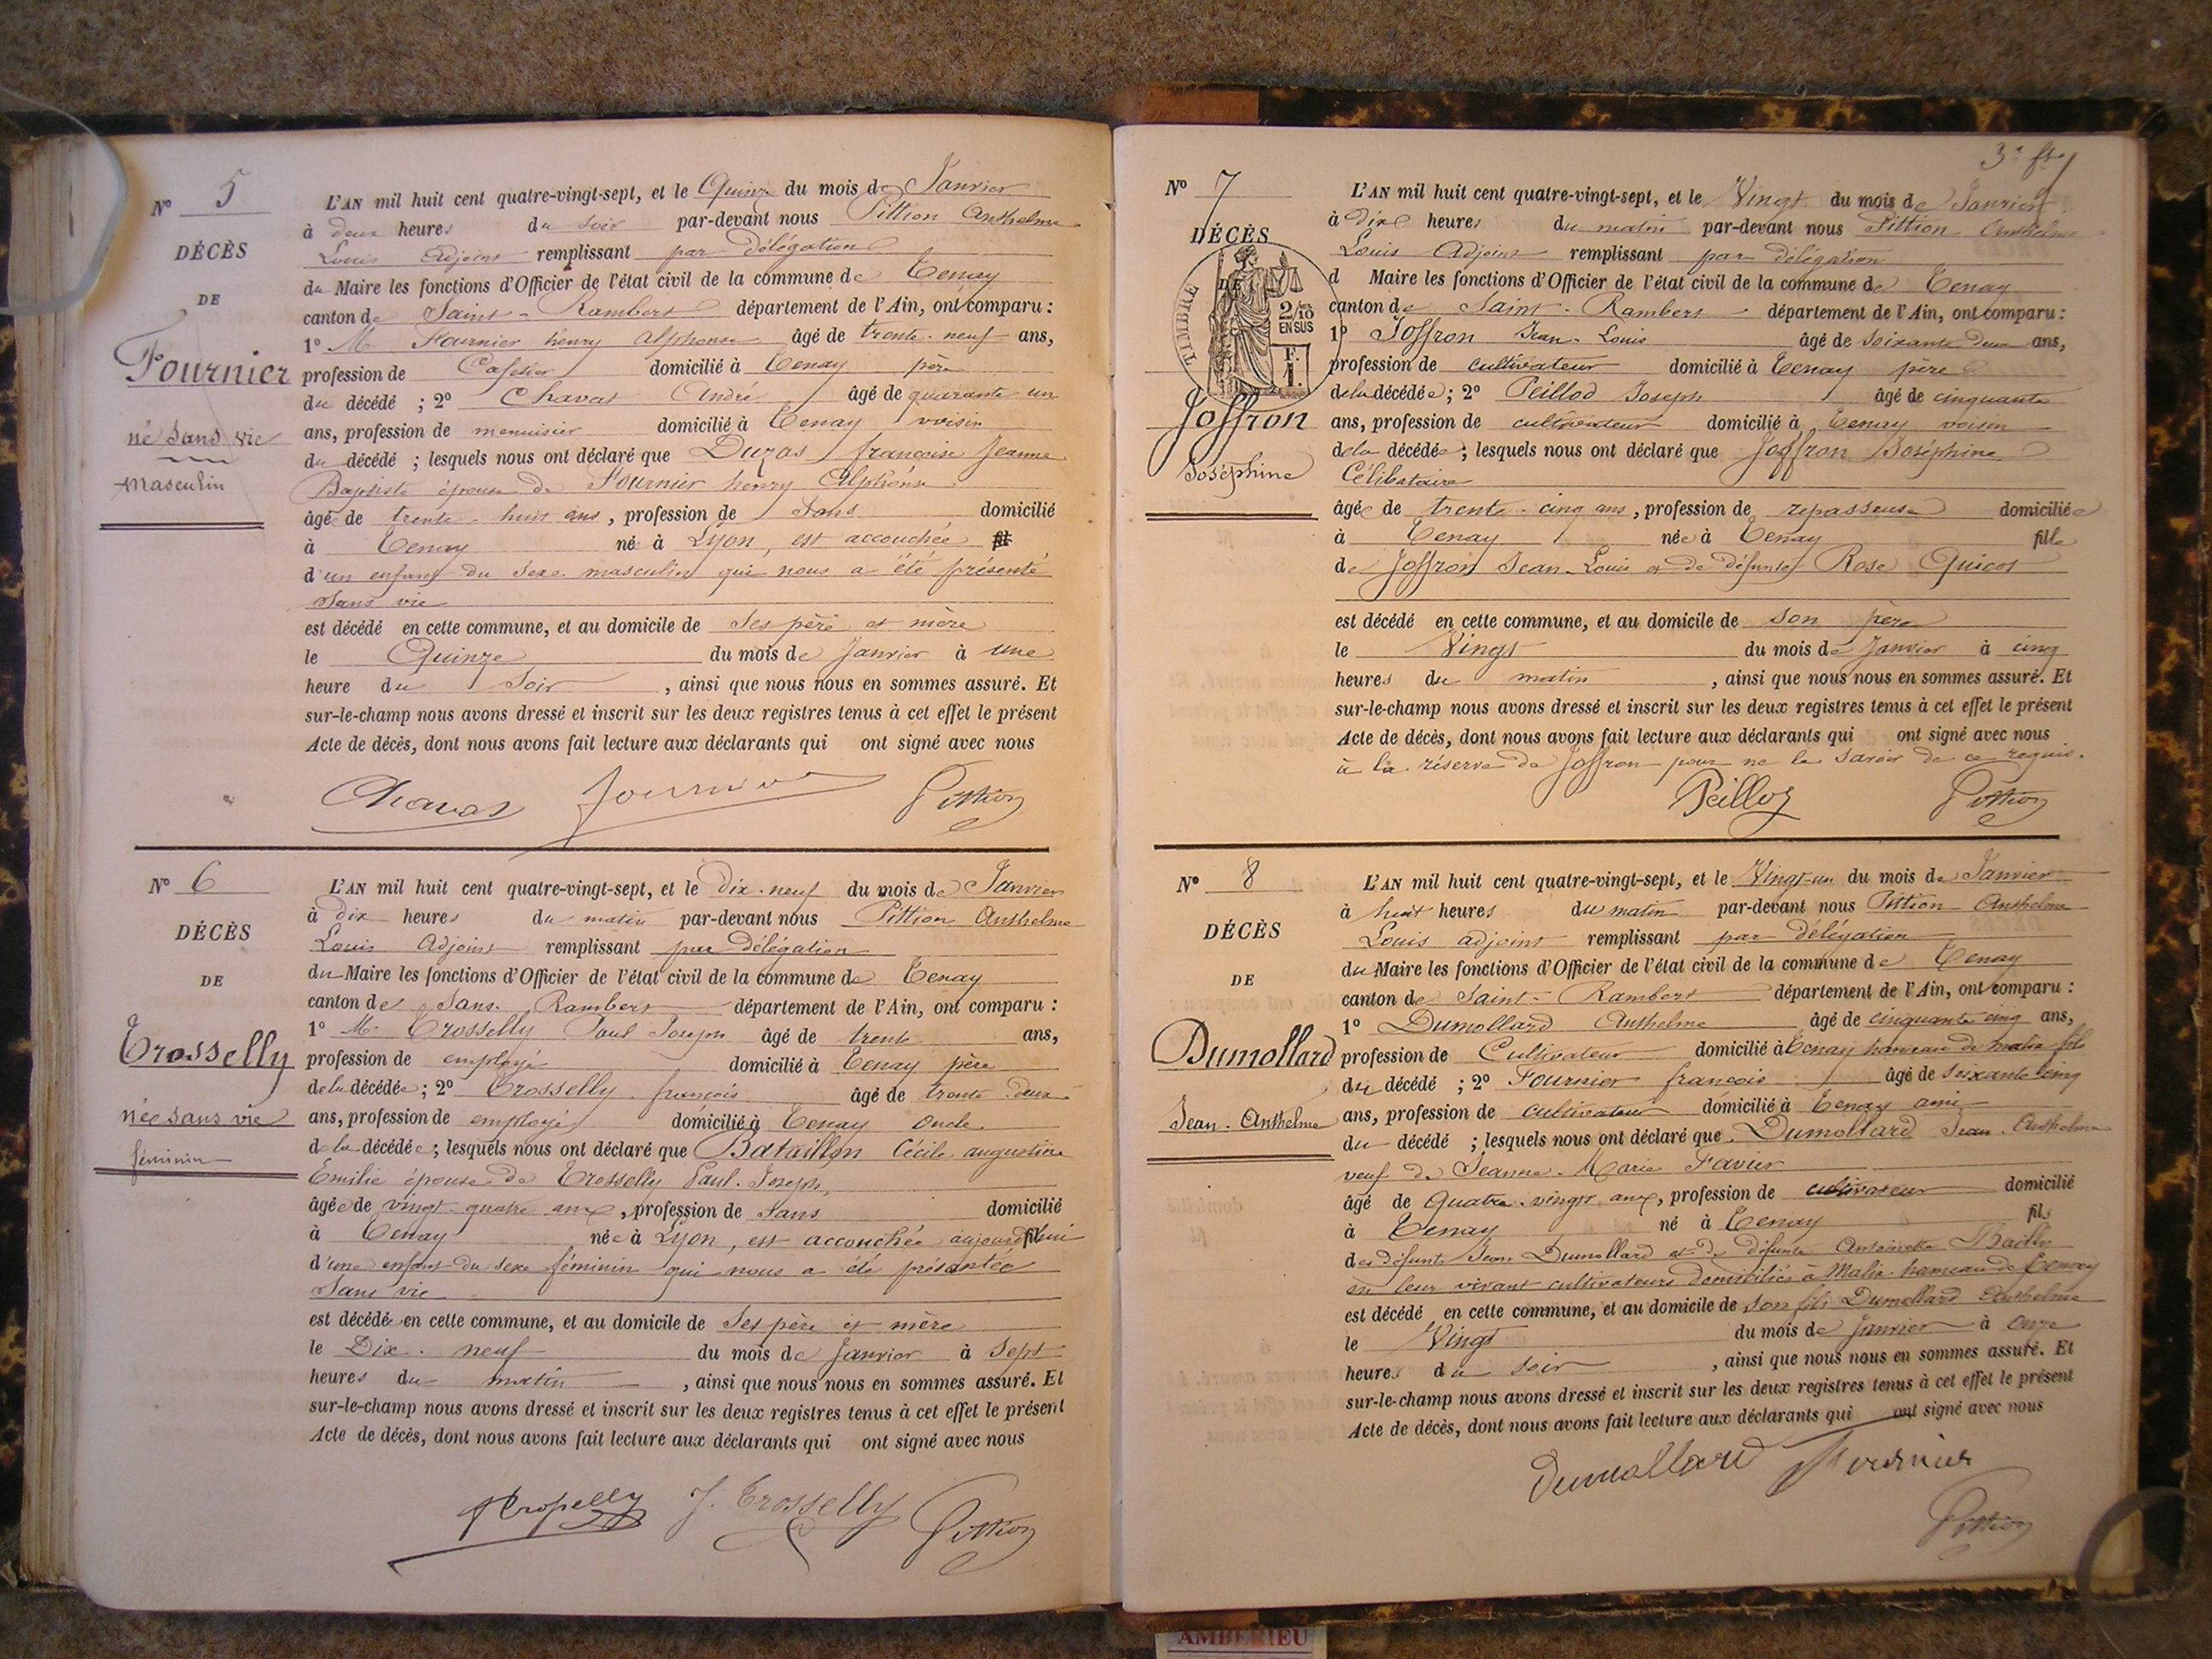 N° 5
DÉCÈS
DE
Fournier
né sans vie
masculin
L'AN mil huit cent quatre-vingt-sept, et le Quinze du mois de Janvier
à deux heures du soir par-devant nous Pittion Anthelme
Louis Adjoint remplissant par délégation
du Maire les fonctions d'Officier de l'état civil de la commune de Tenay
canton de Saint-Rambert département de l'Ain, ont comparu :
1° M. Fournier henry alphonse âgé de trente-neuf ans,
profession de Cafetier domicilié à Tenay père
du décédé ; 2° Chavas André âgé de quarante un
ans, profession de menuisier domicilié à Tenay voisin
du décédé ; lesquels nous ont déclaré que Duras françoise Jeanne
Baptiste épouse de Fournier henry Alphonse
âgé de trente-huit ans, profession de sans domicilié
à Tenay né à Lyon, est accouchée
d'un enfant du sexe masculin qui nous a été présenté
sans vie
est décédé en cette commune, et au domicile de ses père et mère
le Quinze du mois de Janvier à une
heure du Soir, ainsi que nous nous en sommes assuré. Et
sur-le-champ nous avons dressé et inscrit sur les deux registres tenus à cet effet le présent
Acte de décès, dont nous avons fait lecture aux déclarants qui ont signé avec nous
Chavas Fournier Pittion
N° 6
DÉCÈS
DE
Trosselly
née sans vie
féminin
L'AN mil huit cent quatre-vingt-sept, et le dix-neuf du mois de Janvier
à dix heures du matin par-devant nous Pittion Anthelme
Louis Adjoint remplissant par délégation
du Maire les fonctions d'Officier de l'état civil de la commune de Tenay
canton de Saint-Rambert département de l'Ain, ont comparu :
1° M. Trosselly Paul Joseph âgé de trente ans,
profession de employé domicilié à Tenay père
de la décédée ; 2° Trosselly françois âgé de trente deux
ans, profession de employé domicilié à Tenay oncle
de la décédée ; lesquels nous ont déclaré que Bataillon Cécile augustine
Emilie épouse de Trosselly Paul-Joseph,
âgée de vingt-quatre ans, profession de sans domicilié
à Tenay née à Lyon, est accouchée aujourd'hui
d'une enfant du sexe féminin qui nous a été présentée
sans vie
est décédée en cette commune, et au domicile de ses père et mère
le Dix-neuf du mois de Janvier à sept
heures du matin, ainsi que nous nous en sommes assuré. Et
sur-le-champ nous avons dressé et inscrit sur les deux registres tenus à cet effet le présent
Acte de décès, dont nous avons fait lecture aux déclarants qui ont signé avec nous
Trosselly F. Trosselly Pittion
3e ft
N° 7
DÉCÈS
DE
TIMBRE
2/10
EN SUS
F.
1.
Joffron
Joséphine
L'AN mil huit cent quatre-vingt-sept, et le Vingt du mois de Janvier
à dix heures du matin par-devant nous Pittion Anthelme
Louis Adjoint remplissant par délégation
d Maire les fonctions d'Officier de l'état civil de la commune de Tenay
canton de Saint-Rambert département de l'Ain, ont comparu :
1° Joffron Jean-Louis âgé de soixante deux ans,
profession de cultivateur domicilié à Tenay père
de la décédée ; 2° Peillod Joseph âgé de cinquante
ans, profession de cultivateur domicilié à Tenay voisin
de la décédée ; lesquels nous ont déclaré que Joffron Joséphine
Célibataire
âgée de trente-cinq ans, profession de repasseuse domiciliée
à Tenay née à Tenay fille
de Joffron Jean-Louis et de défunte Rose Quicot
est décédé en cette commune, et au domicile de son père
le Vingt du mois de Janvier à cinq
heures du matin, ainsi que nous nous en sommes assuré. Et
sur-le-champ nous avons dressé et inscrit sur les deux registres tenus à cet effet le présent
Acte de décès, dont nous avons fait lecture aux déclarants qui ont signé avec nous
à la réserve de Joffron pour ne le savoir de ce requis.
Peilloz Pittion
N° 8
DÉCÈS
DE
Dumollard
Jean-Anthelme
L'AN mil huit cent quatre-vingt-sept, et le Vingt-un du mois de Janvier
à huit heures du matin par-devant nous Pittion Anthelme
Louis adjoint remplissant par délégation
du Maire les fonctions d'Officier de l'état civil de la commune de Tenay
canton de Saint-Rambert département de l'Ain, ont comparu :
1° Dumollard Anthelme âgé de cinquante cinq ans,
profession de Cultivateur domicilié à Tenay hameau de Malix fils
du décédé ; 2° Fournier françois âgé de soixante cinq
ans, profession de cultivateur domicilié à Tenay ami
du décédé ; lesquels nous ont déclaré que Dumollard Jean-Anthelme
veuf de Jeanne-Marie Favier
âgé de Quatre-vingt ans, profession de cultivateur domicilié
à Tenay né à Tenay fils
de défunt Jean Dumollard et de défunte Antoinette Bailly
en leur vivant cultivateurs domiciliés à Malix hameau de Tenay
est décédé en cette commune, et au domicile de son fils Dumollard Anthelme
le Vingt du mois de Janvier à onze
heures du soir, ainsi que nous nous en sommes assuré. Et
sur-le-champ nous avons dressé et inscrit sur les deux registres tenus à cet effet le présent
Acte de décès, dont nous avons fait lecture aux déclarants qui ont signé avec nous
Dumollard Fournier
Pittion
AMBERIEU